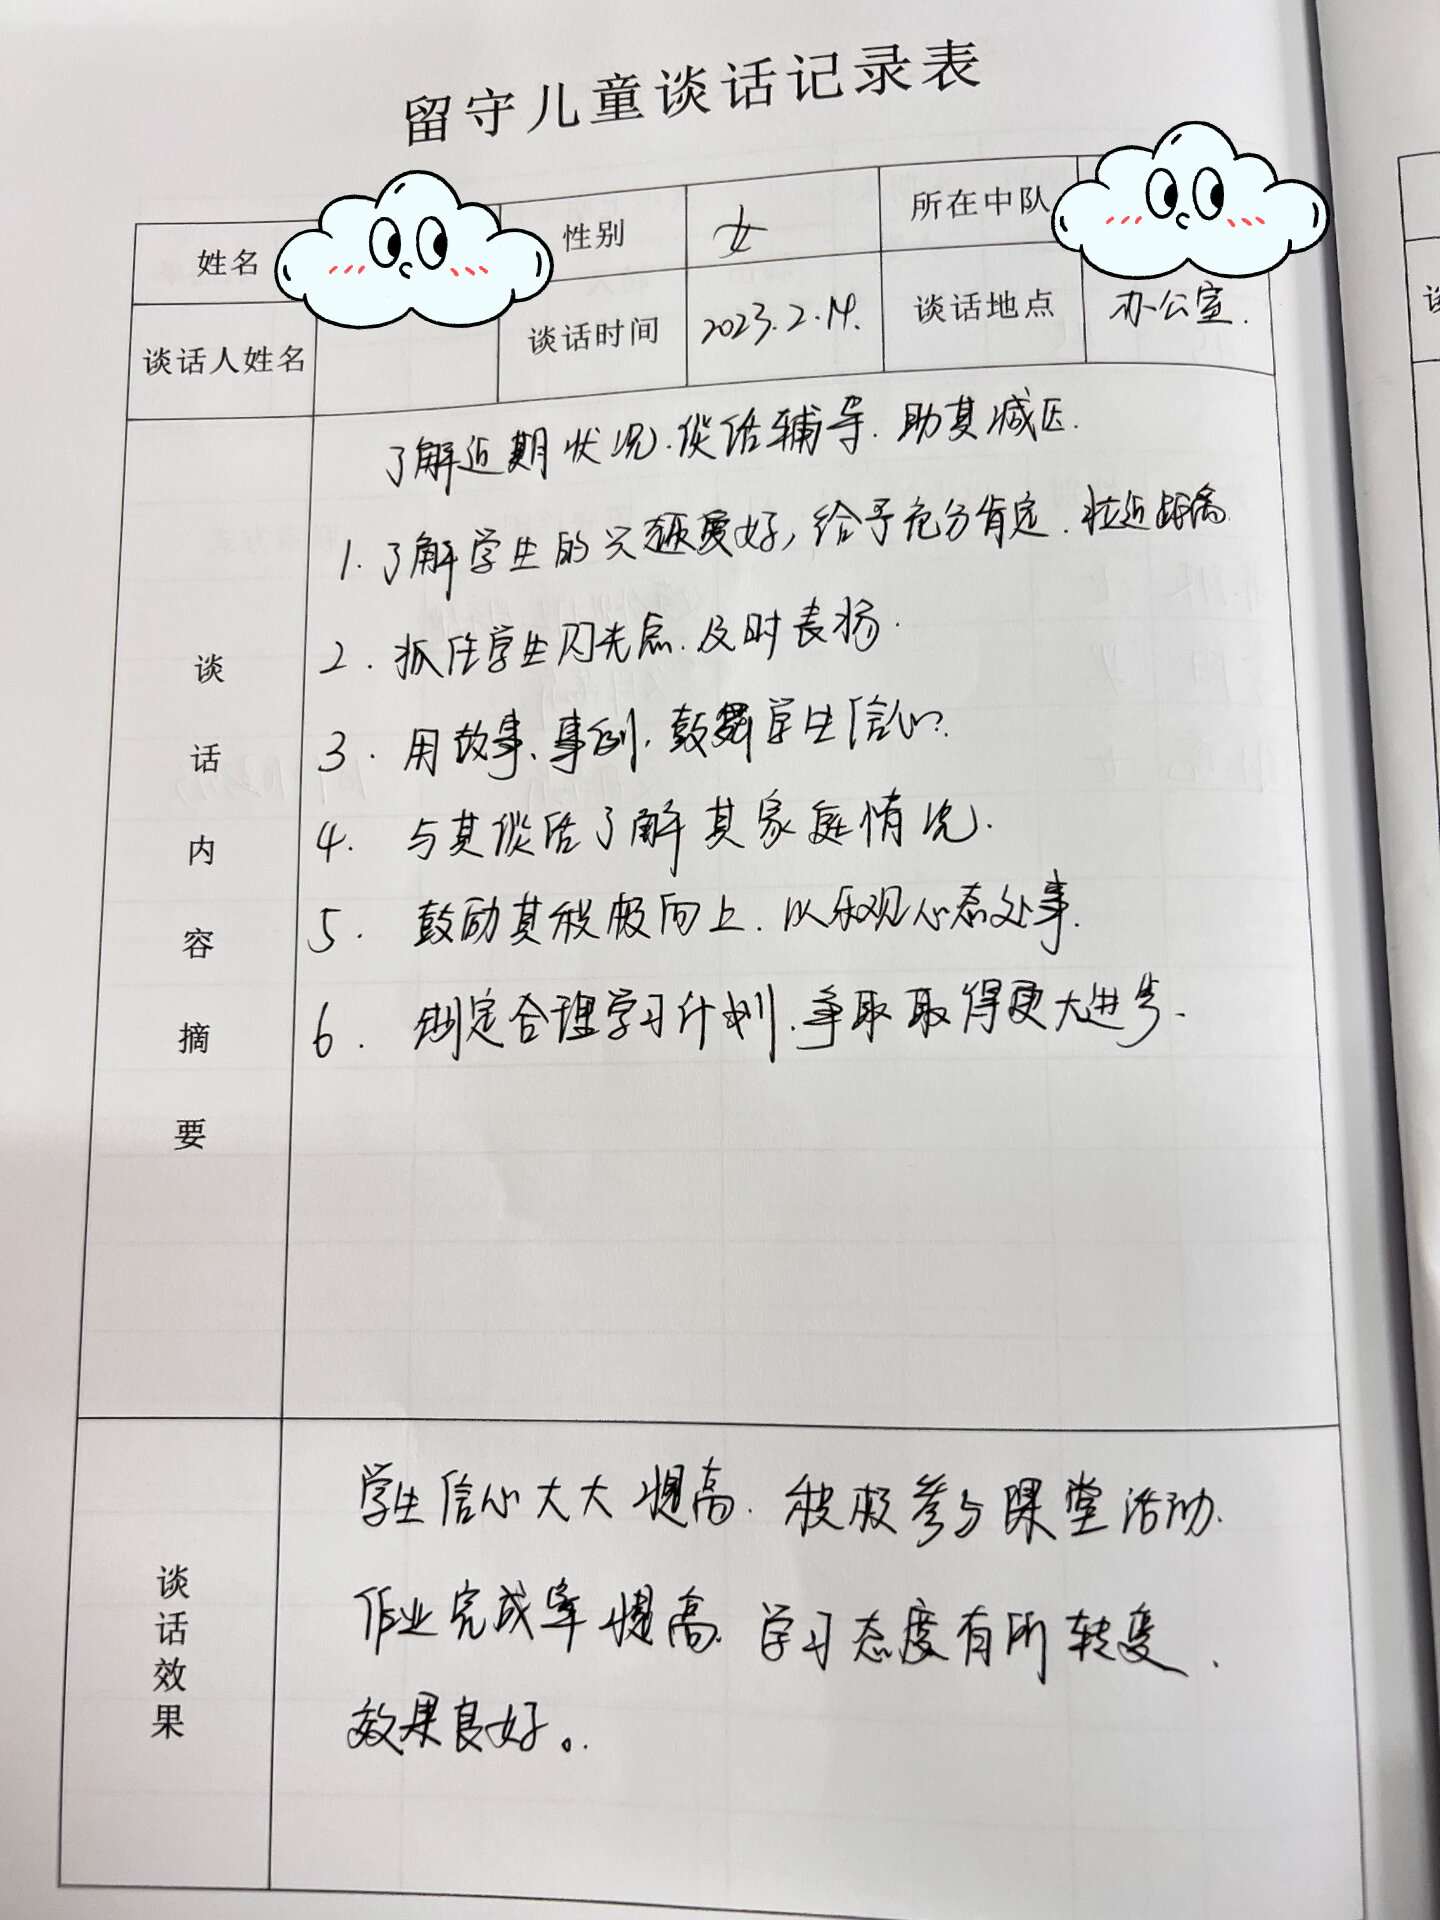 留守儿童谈话记录表
姓名 性别 女 所在中队
谈话人姓名 谈话时间 2023.2.14. 谈话地点 办公室.
谈话内容摘要
了解近期状况.谈话辅导.助其减压.
1.了解学生的兴趣爱好,给予充分肯定.拉近距离
2.抓住学生闪光点.及时表扬.
3.用故事、事例,鼓舞学生信心.
4.与其谈话了解其家庭情况.
5.鼓励其积极向上.以乐观心态处事.
6.制定合理学习计划.争取取得更大进步.
谈话效果
学生信心大大提高.积极参与课堂活动.
作业完成率提高.学习态度有所转变.
效果良好。